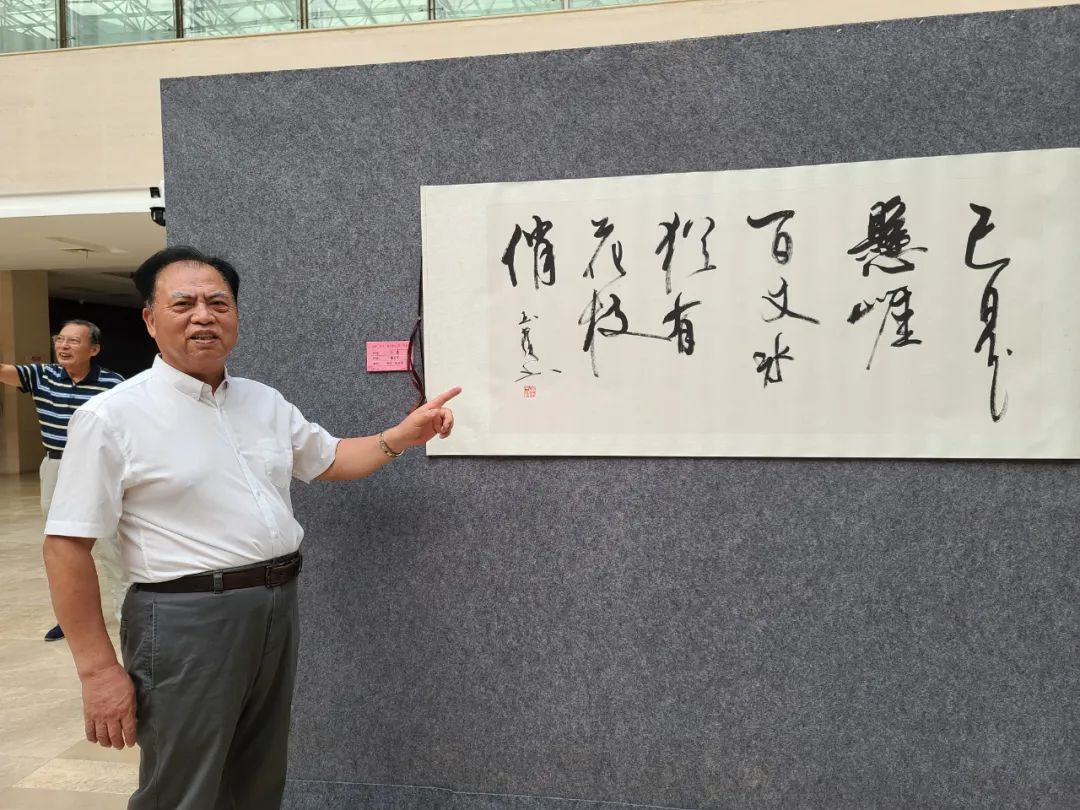 已是
懸崖
百丈冰
犹有
花枝
俏